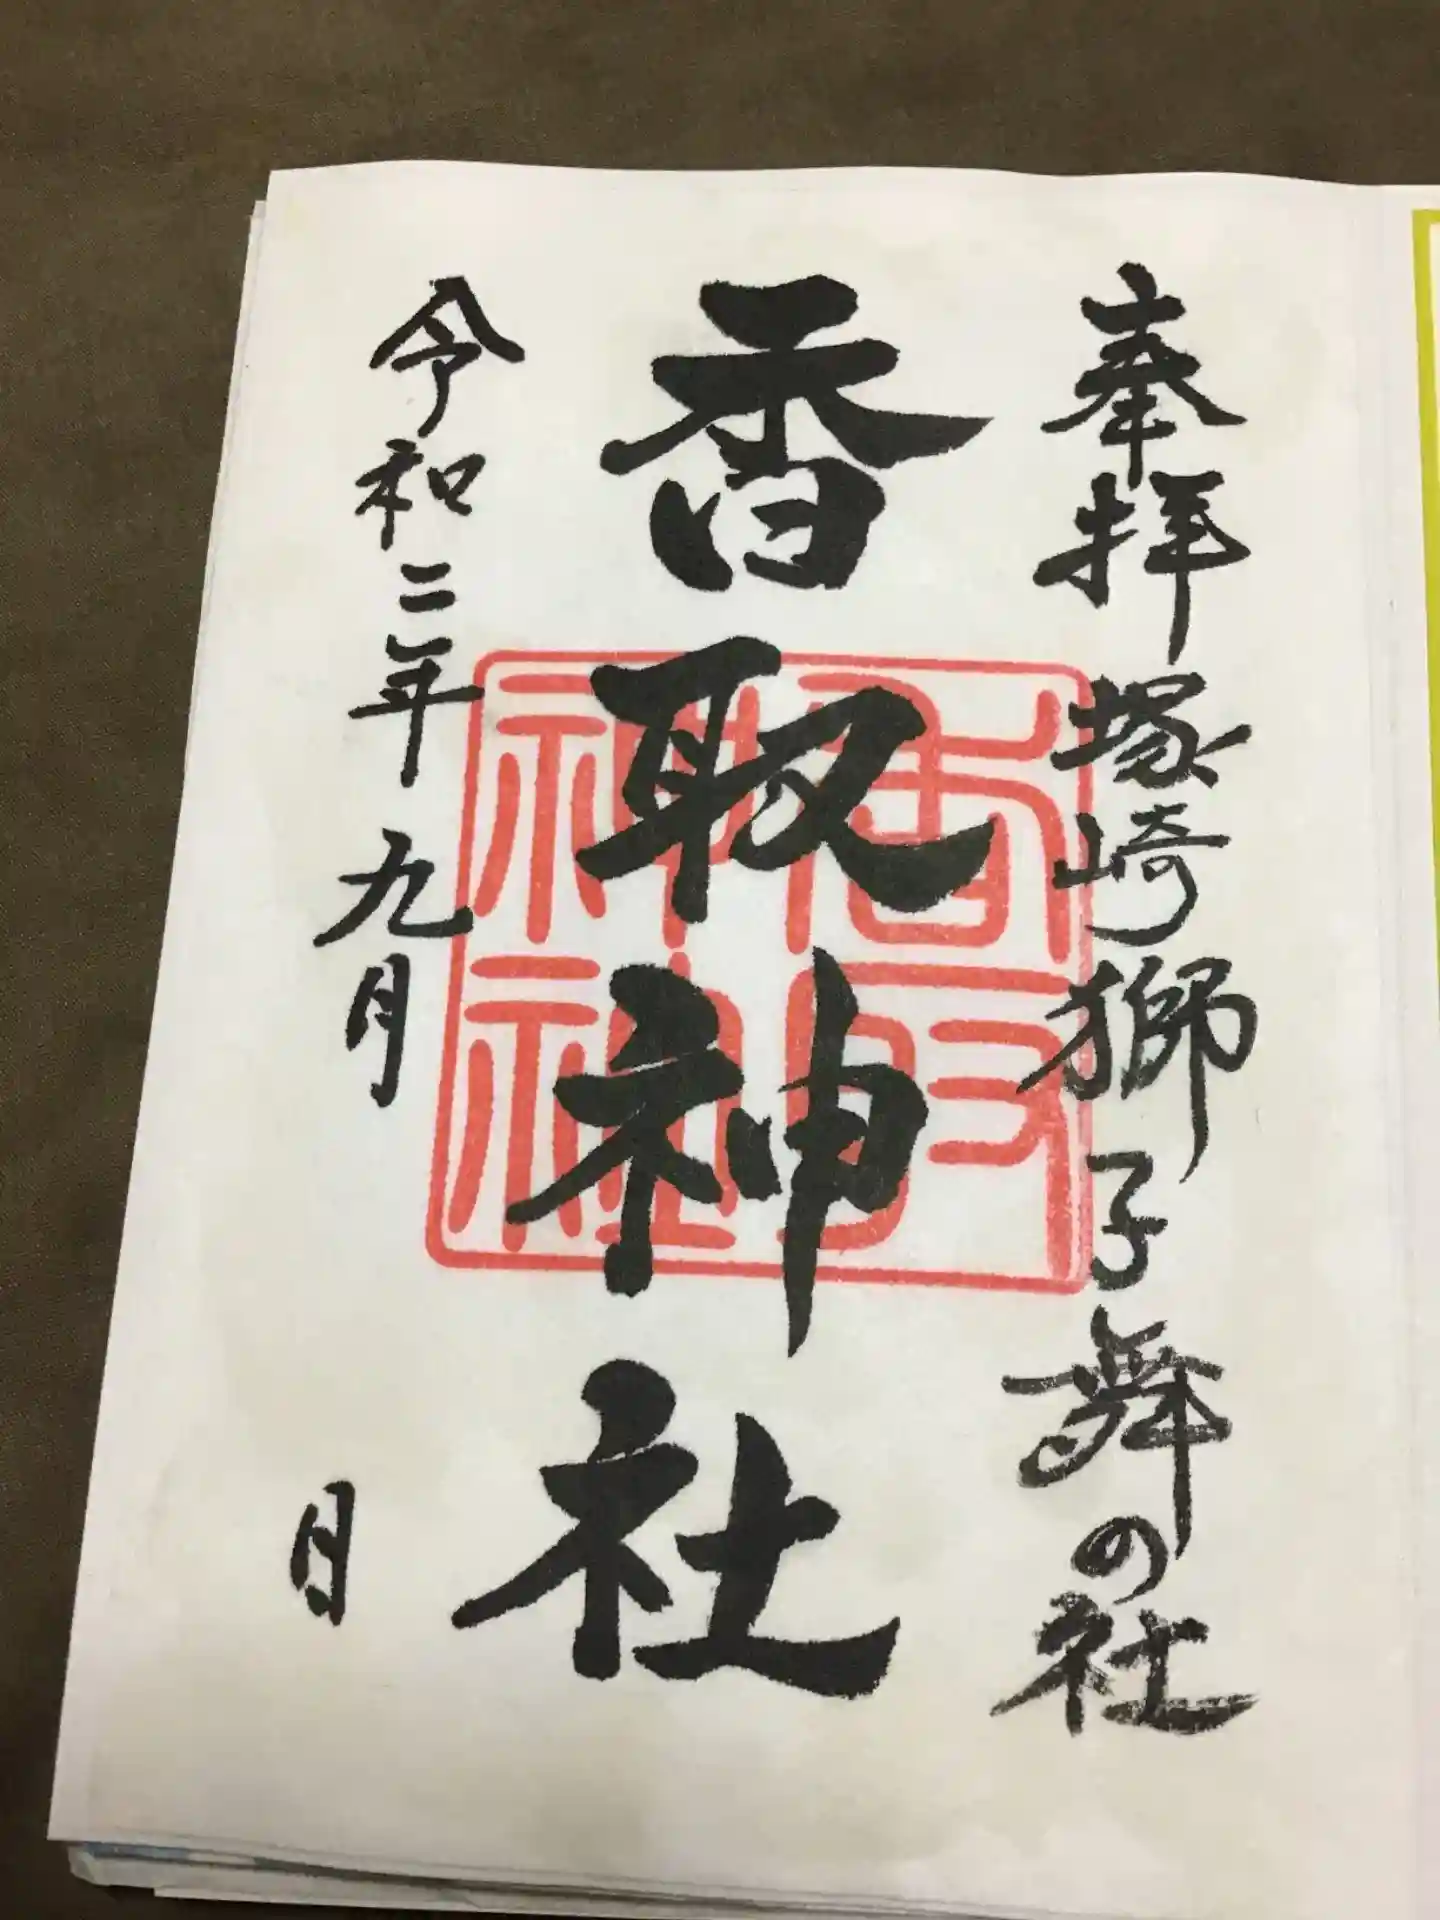 奉拝 塚崎獅子舞の社
香取神社
令和二年 九月 日
香取
神社